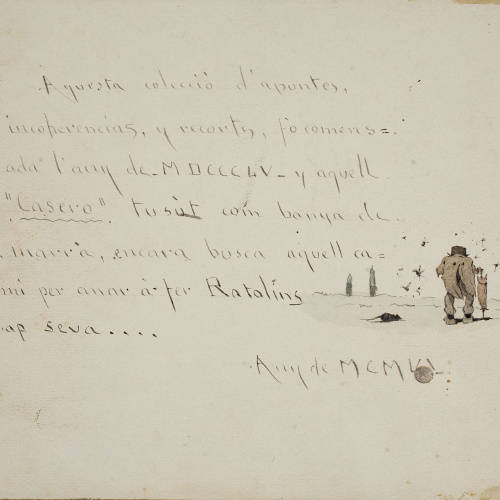 Aquesta colecció d'apuntes,
incoherencias, y recorts, fo comens=
ada l'any de MDCCCLV - y aquell
"Casero" tusút com banya de
marrá, encara busca aquell ca=
mi per anar á fer Ratalíns
cap seva....
Any de MCMVI